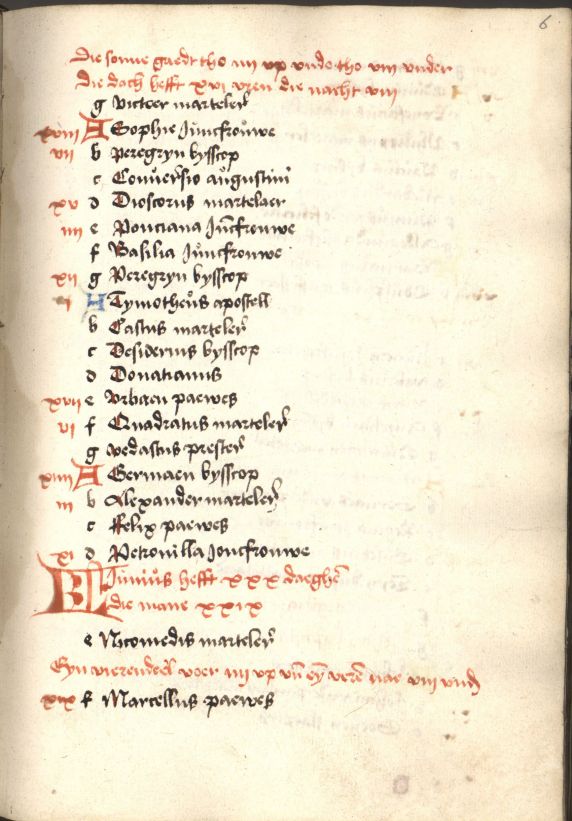 6
Die sonne gaedt tho iiij vp vnde tho viij vnder
Die dach hefft xvi vren die nacht viij
g Victeer marteler
xviij A Sophie Juncfrouwe
vij b peregryn bysscop
c Conuersio augustini
xv d Dioscorus martelaer
iiij e Ponciana Juncfrouwe
f Basilia Juncfrouwe
xij g Peregryn bysscop
i A Tymotheus apostell
b Castus marteler
c Desiderius bysscop
d Donatianus
xvij e Vrbaen paewes
vi f Quadratus marteler
g vedastus prester
xiiij A Germaen bysscop
iij b Alexander marteler
c Felix paewes
xi d Petronilla Joncfrouwe
Junius hefft xxx daeghen
die mane xxix
e Nicomedis marteler
Eyn vierendeel voer iiij vp vn eyn veren nae viij vnd
xix f Marcellus paewes